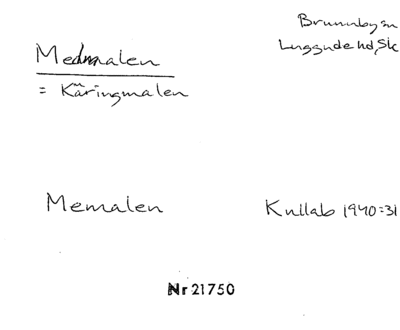 Brunnby sn
Luggude hd, Sk
Medmalen
= Käringmalen
Memalen
Kullab 1940:31
Nr 21750